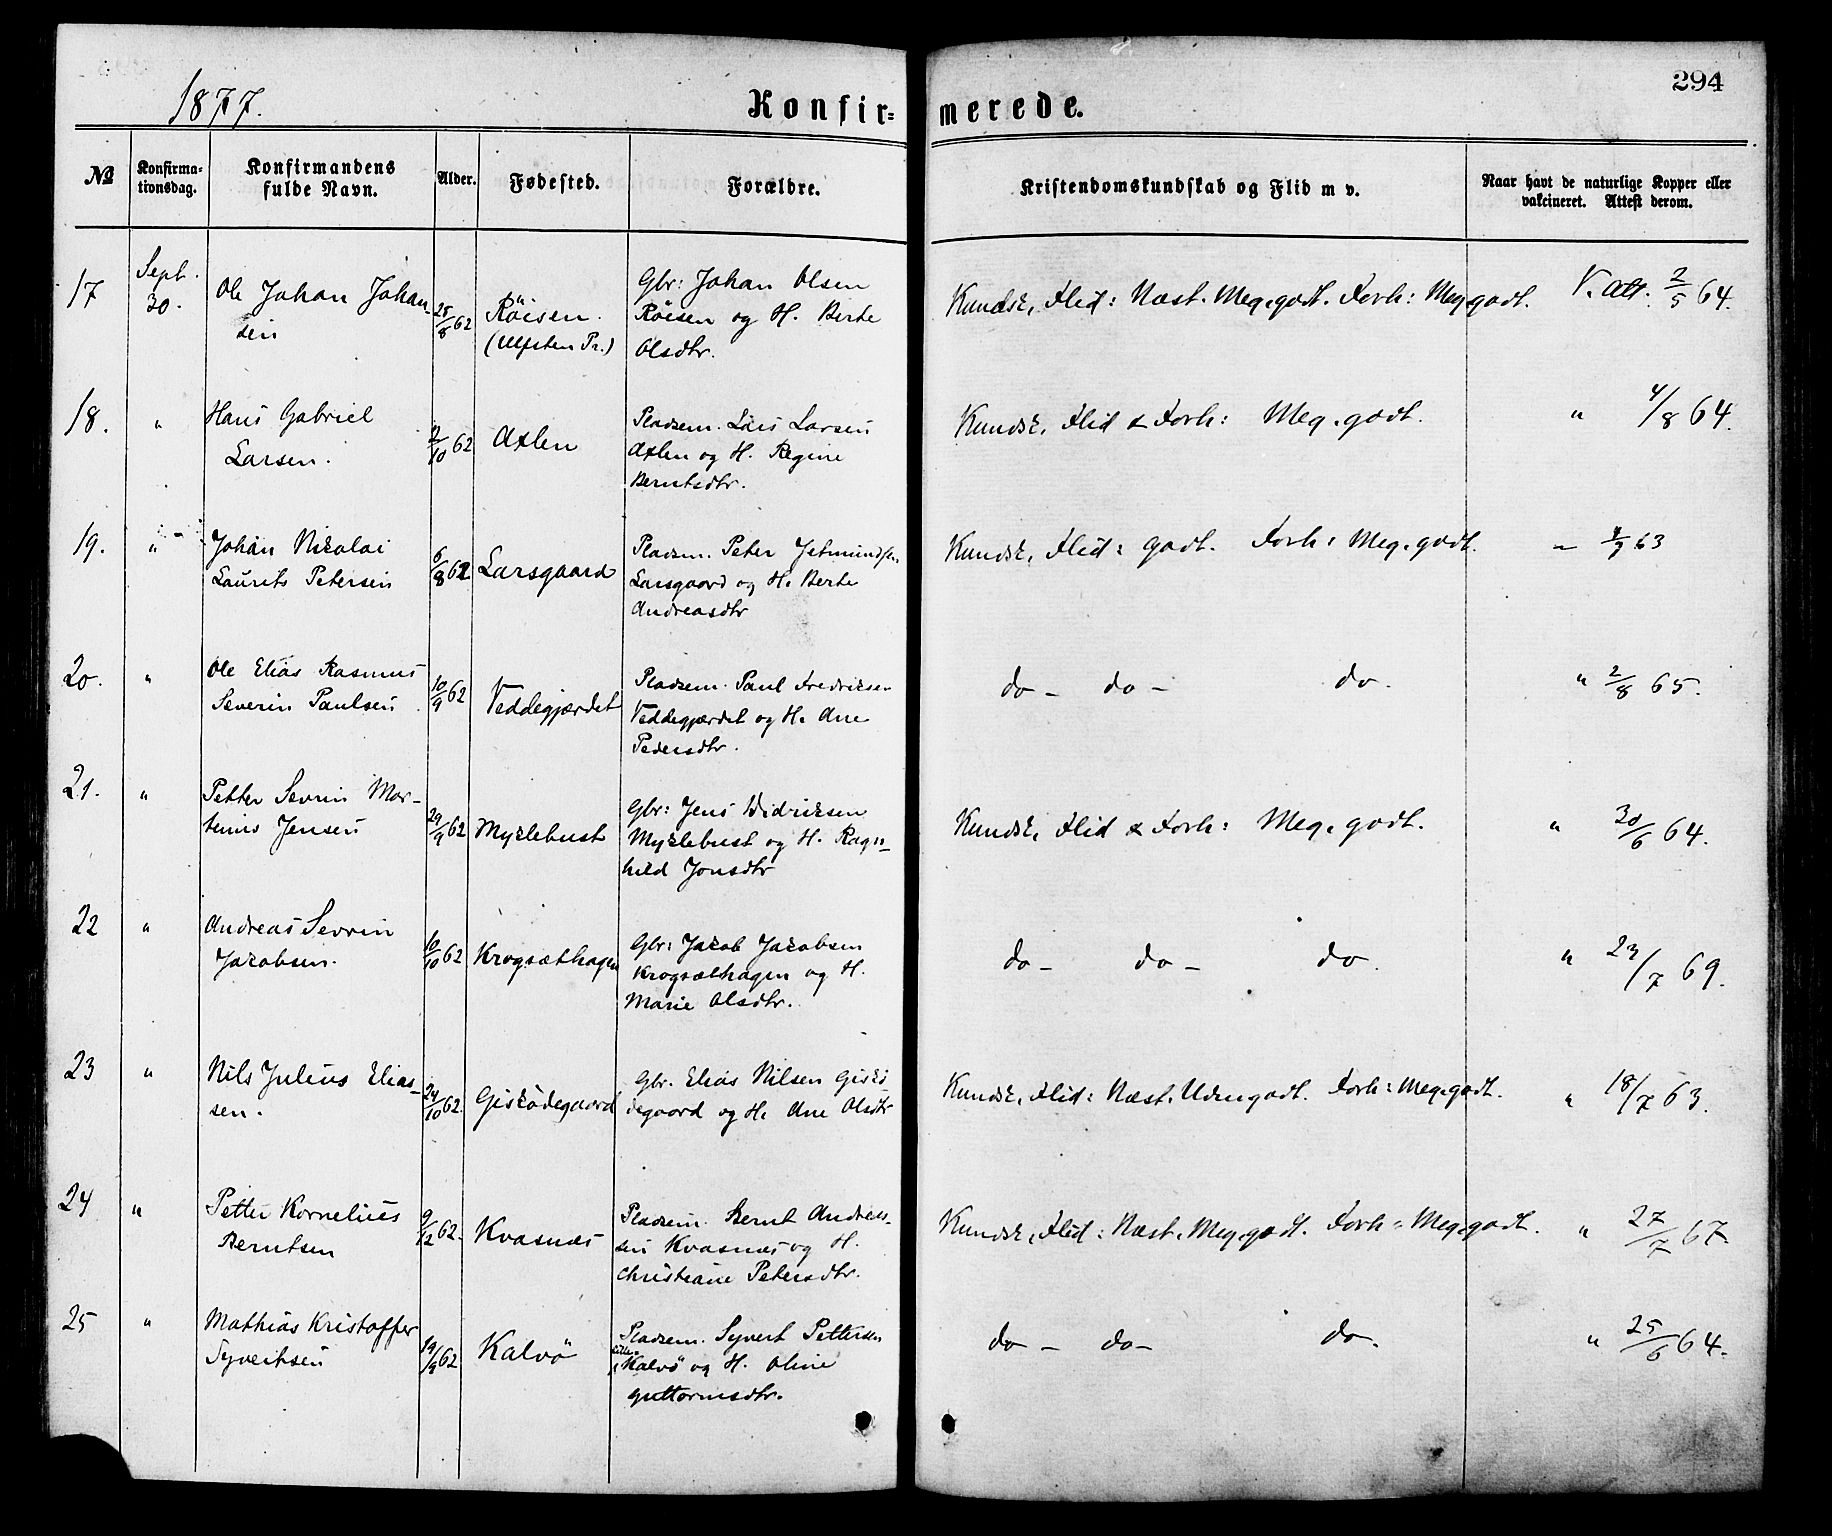 294
1877.
Konfir=
merede.
№
Konfirma-
tionsdag.
Konfirmandens
fulde Navn.
Alder.
Fødested.
Forældre.
Kristendomskundskab og Flid m v.
Naar havt de naturlige Kopper eller
vakcineret. Attest derom.
17
Sept.
30.
Ole Johan Johan-
sen
25/8 62
Röisen.
(Ulfsten Pr.)
Gbr: Johan Olsen
Röisen og H. Berte
Olsdtr.
Kundsk, Flid: Næst. Meg. godt. Forh: Meg. godt.
V. Att. 2/5 64.
18.
"
Hans Gabriel
Larsen.
2/10 62
Axlen
Pladsm. Lars Larsen
Axlen og H. Regine
Berntsdtr.
Kundsk, Flid & Forh: Meg. godt.
" 4/8 64.
19.
"
Johan Nikolai
Laurits Petersen
6/8 62
Larsgaard
Pladsm. Peter Jetmundsen
Larsgaard og H. Berte
Andreasdtr
Kundsk, Flid: godt. Forh: Meg. godt.
63
20.
"
Ole Elias Rasmus
Severin Paulsen
10/9 62
Veddegjærdet
Pladsm. Paul Fredriksen
Veddegjærdet og H. Ane
Pedersdtr.
do - do - do.
" 2/8 65.
21.
"
Petter Sevrin Mar-
tinus Jensen
29/9 62
Myklebust
Gbr: Jens Didriksen
Myklebust og H. Ragn-
hild Jonsdtr
Kundsk, Flid & Forh: Meg. godt.
" 30/6 64.
22
"
Andreas Sevrin
Jakobsen.
10/10 62
Krogsæthagen
Gbr: Jakob Jakobsen
Krogsæthagen og H.
Marie Olsdtr.
do - do - do.
" 23/7 69.
23
"
Nils Julius Elias-
sen.
24/10 62.
Giskødegaard
Gbr. Elias Nilsen Giskø
degaard og H. Ane Olsdtr
Kundsk, Flid: Næst. Udm godt. Forh: Meg. godt.
" 18/7 63.
24
"
Petter Kornelius
Berntsen
9/12 62.
Kvasnæs
Pladsm. Bernt Andreas-
sen Kvasnæs og H.
Christiane Petersdtr.
Kundsk, Flid: Næst. Meg. godt. Forh: Meg. godt.
" 27/7 67.
25
"
Mathias Kristoffer
Syvertsen
19/9 62
Kalvö
Pladsm. Syvert Pettersen
Kalvö og H. Oline
Guttormsdtr.
do - do - do.
" 25/6 64.